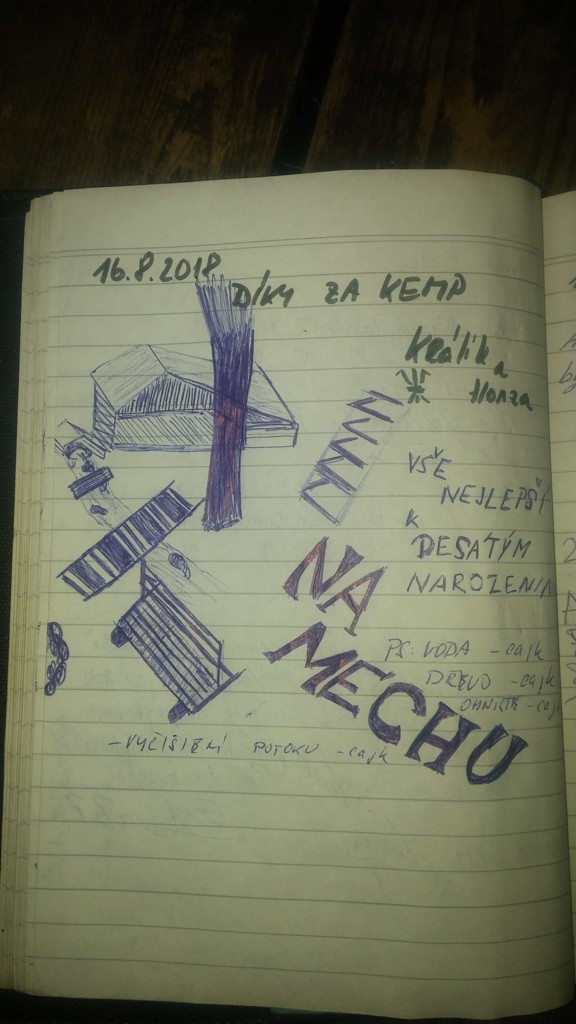 16.8.2018
DÍKY ZA KEMP
Králík a
Honza
VŠE
NEJLEPŠÍ
K
DESÁTÝM
NAROZENIN
NA
MECHU
PS: VODA - cajk
DŘEVO - cajk
OHNIŠTĚ - caj
- VYČIŠTĚNÍ POTOKU - cajk